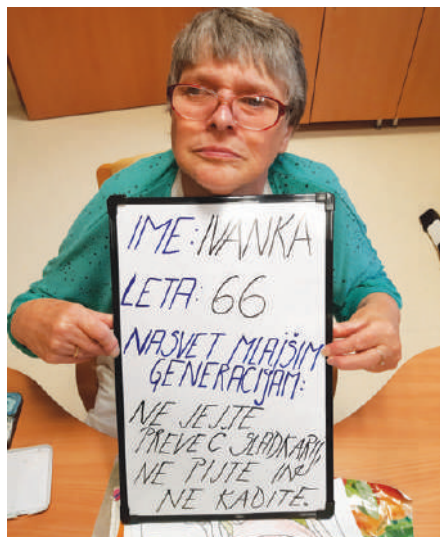 IME: IVANKA
LETA: 66
NASVET MLAJŠIM
GENERACIJAM:
NE JEJTE
PREVEČ SLADKARIJ,
NE PIJTE IN
NE KADITE.